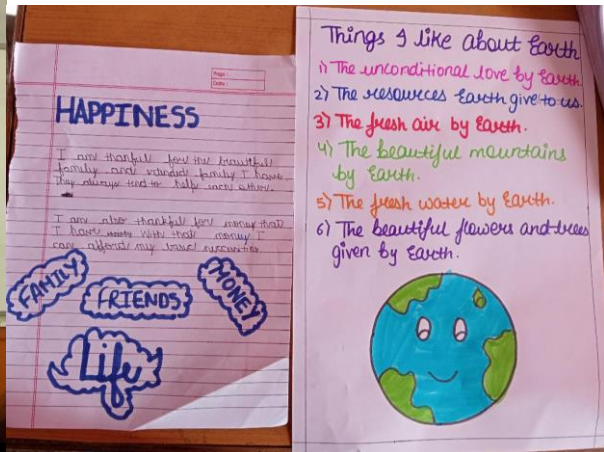 Page :
Date :
HAPPINESS
I am thanful for the beautiful
family and friends family I have
They always tend to help each other.
I am also thankful for money that
I have with that money I
can afford my basic necessities
FAMILY
FRIENDS
MONEY
Life
Things I like about Earth
1) The unconditional love by Earth
2) The resources Earth give to us.
3) The fresh air by Earth.
4) The beautiful mountains
by Earth.
5) The fresh water by Earth.
6) The beautiful flowers and trees
given by Earth.